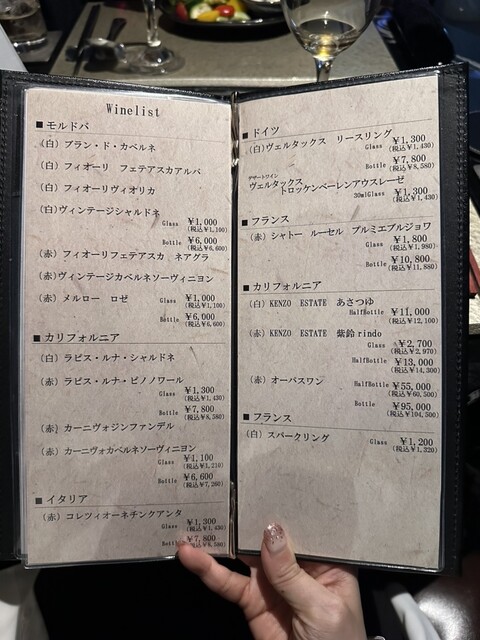 Winelist
■モルドバ
(白) ブラン・ド・カベルネ
(白) フィオーリ フェテアスカアルバ
(白) フィオーリヴィオリカ
(白)ヴィンテージシャルドネ
Glass ¥1,000
(税込¥1,100)
Bottle ¥6,000
(税込¥6,600)
(赤) フィオーリフェテアスカ ネアグラ
(赤)ヴィンテージカベルネソーヴィニヨン
(赤) メルロー ロゼ Glass ¥1,000
(税込¥1,100)
Bottle ¥6,000
(税込¥6,600)
■カリフォルニア
(白) ラピス・ルナ・シャルドネ
(赤) ラピス・ルナ・ピノノワール
Glass ¥1,300
(税込¥1,430)
Bottle ¥7,800
(税込¥8,580)
(赤) カーニヴォジンファンデル
(赤) カーニヴォカベルネソーヴィニヨン
Glass ¥1,100
(税込¥1,210)
Bottle ¥6,600
(税込¥7,260)
■イタリア
(赤) コレツィオーネチンクアンタ
Glass ¥1,300
(税込¥1,430)
Bottle ¥7,800
(税込¥8,580)
■ドイツ
(白)ヴェルタックス リースリング
Glass ¥1,300
(税込¥1,430)
Bottle ¥7,800
(税込¥8,580)
デザートワイン
ヴェルタックス
トロッケンベーレンアウスレーゼ
30mlGlass ¥1,300
(税込¥1,430)
■フランス
(赤) シャトー ルーセル プルミエブルジョワ
Glass ¥1,800
(税込¥1,980)
Bottle ¥10,800
(税込¥11,880)
■カリフォルニア
(白) KENZO ESTATE あさつゆ
HalfBottle ¥11,000
(税込¥12,100)
(赤) KENZO ESTATE 紫鈴rindo
Glass ¥2,700
(税込¥2,970)
HalfBottle ¥13,000
(税込¥14,300)
(赤) オーパスワン HalfBottle ¥55,000
(税込¥60,500)
Bottle ¥95,000
(税込¥104,500)
■フランス
(白) スパークリング Glass ¥1,200
(税込¥1,320)